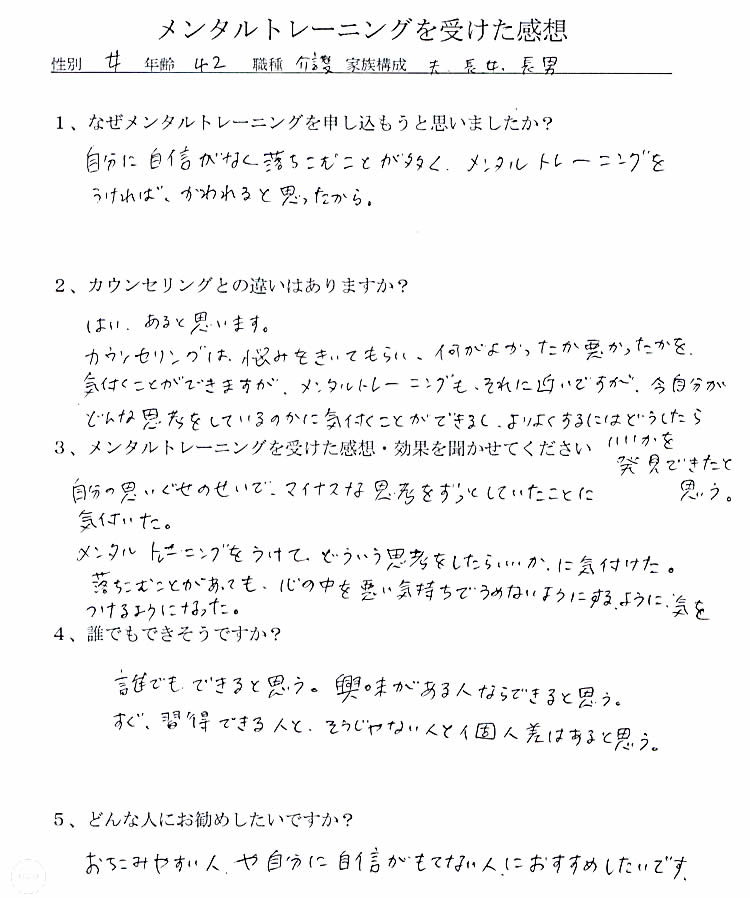 メンタルトレーニングを受けた感想
性別 女 年齢 42 職種 介護 家族構成 夫、長女、長男
１、なぜメンタルトレーニングを申し込もうと思いましたか？
自分に自信がなく落ちこむことが多く、メンタルトレーニングを
うければ、かわれると思ったから。
２、カウンセリングとの違いはありますか？
はい、あると思います。
カウンセリングは、悩みをきいてもらい、何がよかったか悪かったかを、
気付くことができますが、メンタルトレーニングも、それに近いですが、今自分が
どんな思考をしているのかに気付くことができるし、よりよくするにはどうしたら
いいかを
発見できたと
思う。
３、メンタルトレーニングを受けた感想・効果を聞かせてください
自分の思いぐせのせいで、マイナスな思考をずっとしていたことに
気付いた。
メンタルトレーニングをうけて、どういう思考をしたらいいか、に気付けた。
落ちこむことがあっても、心の中を悪い気持ちでうめないようにする、ように、気を
つけるようになった。
４、誰でもできそうですか？
誰でも、できると思う。興味がある人ならできると思う。
すぐ、習得できる人と、そうじゃない人と個人差はあると思う。
５、どんな人にお勧めしたいですか？
おちこみやすい人、や自分に自信がもてない人、におすすめしたいです。